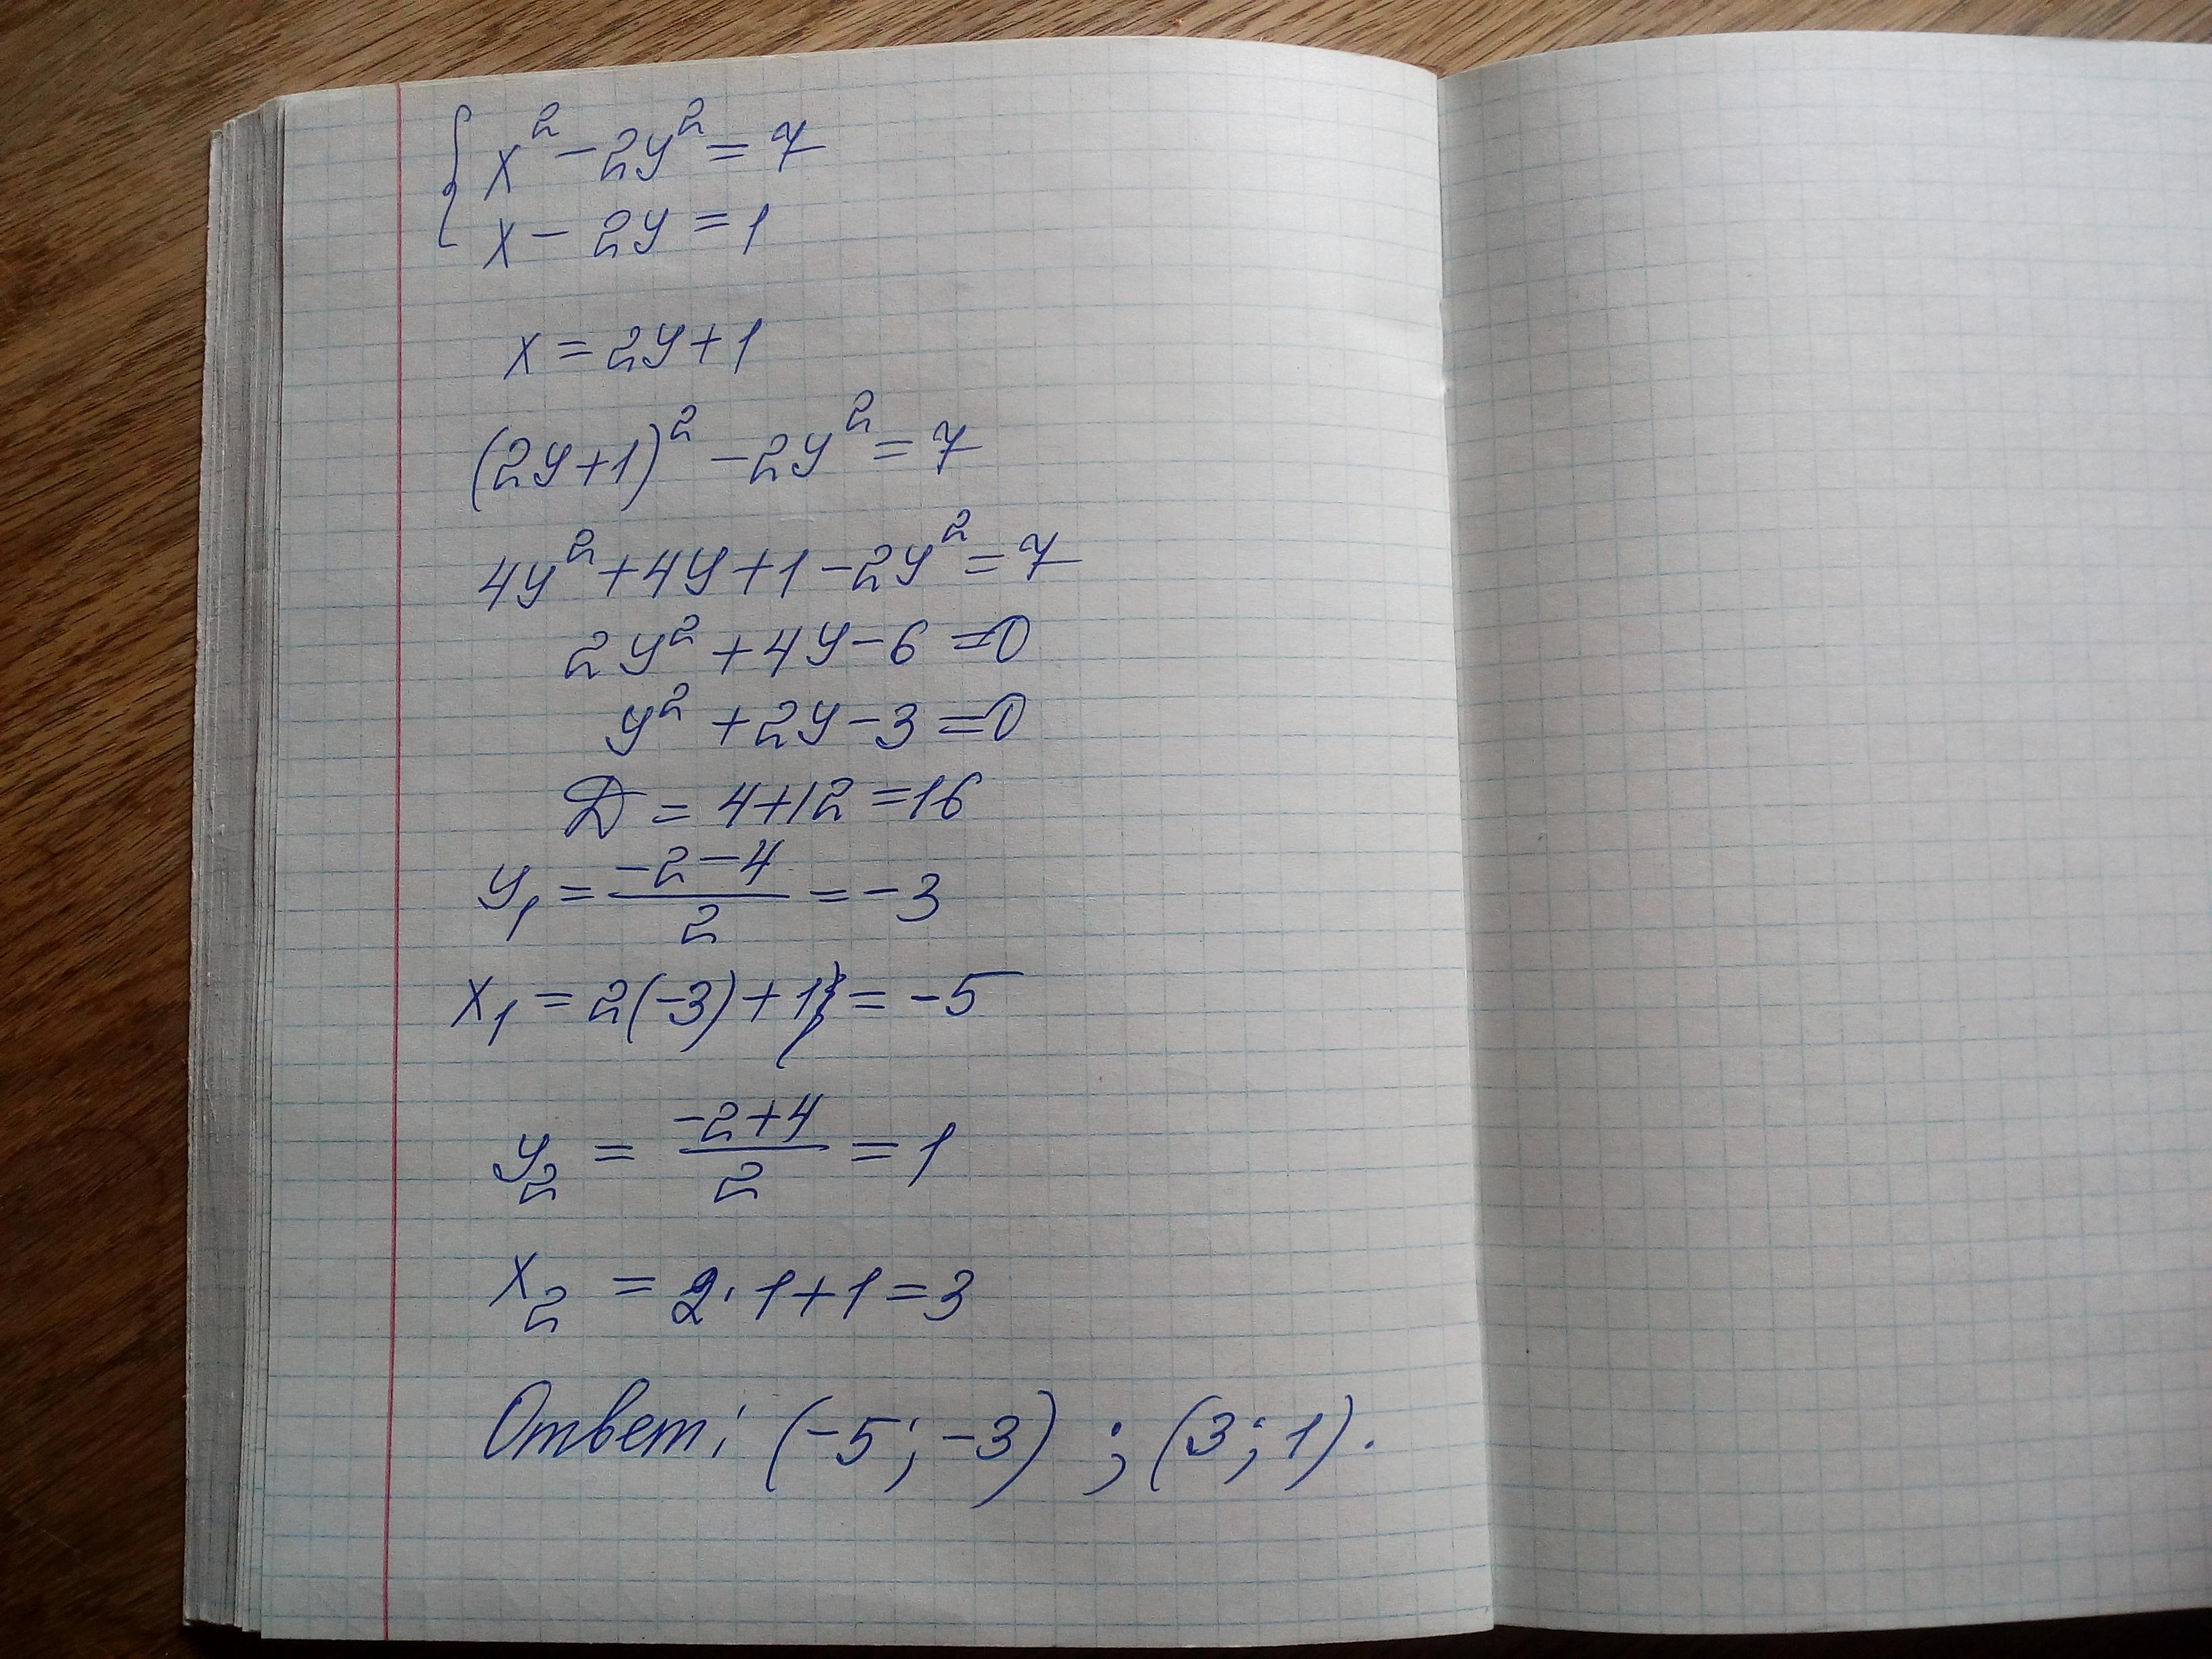 { x² - 2y² = 7
x - 2y = 1
x = 2y + 1
(2y + 1)² - 2y² = 7
4y² + 4y + 1 - 2y² = 7
2y² + 4y - 6 = 0
y² + 2y - 3 = 0
D = 4 + 12 = 16
y₁ = (-2 - 4)/2 = -3
x₁ = 2(-3) + 1 = -5
y₂ = (-2 + 4)/2 = 1
x₂ = 2 · 1 + 1 = 3
Ответ: (-5; -3) ; (3; 1).